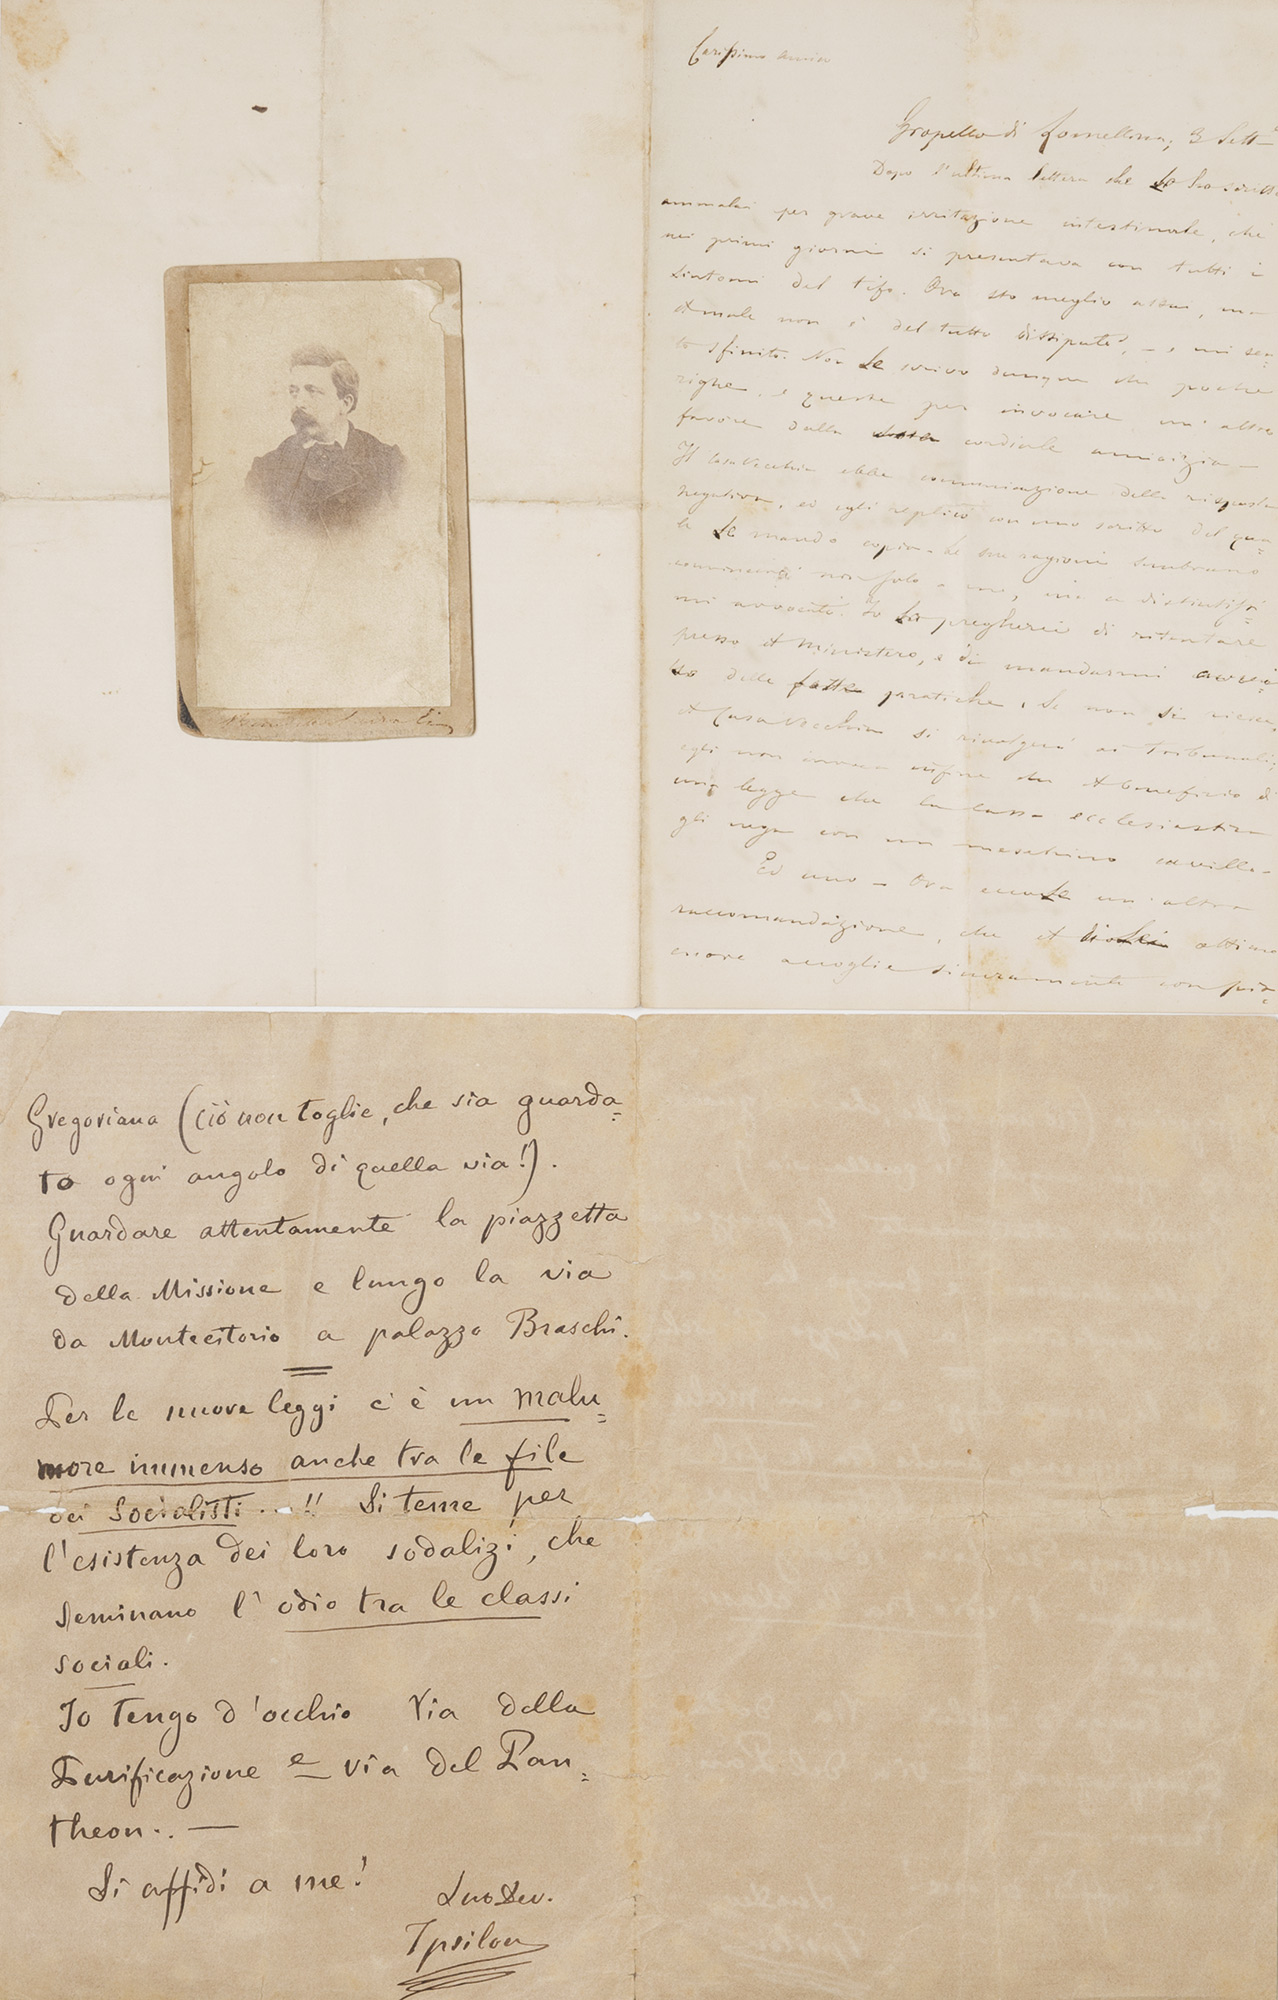 Carissimo amico
Gropello di Lomellina, 3 Sett
Dopo l'ultima lettera che Le ho scritto
ammalai per grave irritazione intestinale, che
nei primi giorni si presentava con tutti i
sintomi del tifo. Ora sto meglio assai, ma
il male non è del tutto dissipato, – e mi sen=
to sfinito. Non Le scrivo dunque che poche
righe, e queste per invocare un' altro
favore dalla cordiale amicizia –
Il Casavecchia ebbe comunicazione della risposta
negativa, ed egli replicò con uno scritto del qua=
le Le mando copia. Le sue ragioni sembrano
convincenti non solo a me, ma a distintissi=
mi avvocati. Io La pregherei di ritentare
presso il Ministero, e di mandarmi avvi
so delle fatte pratiche. Se non si riesce,
il Casavecchia si rivolgerà ai Tribunali;
egli non invoca infine che il beneficio di
una legge che la Cassa ecclesiastica
gli nega con un meschino cavillo.
Ed uno – Ora eccoLe un' altra
raccomandazione, che il di Lei ottimo
cuore accoglie sicuramente con pia=
Gregoriana (ciò non toglie, che sia guarda=
to ogni angolo di quella via!).
Guardare attentamente la piazzetta
della Missione e lungo la via
da Montecitorio a palazzo Braschi.
Per le nuove leggi c'è un malu=
more immenso anche tra le file
dei Socialisti...!! Si teme per
l'esistenza dei loro sodalizi, che
seminano l'odio tra le classi
sociali.
Io tengo d'occhio Via della
Purificazione e via del Pan=
theon.. —
Si affidi a me!
Suo Dev.
Ypsilon